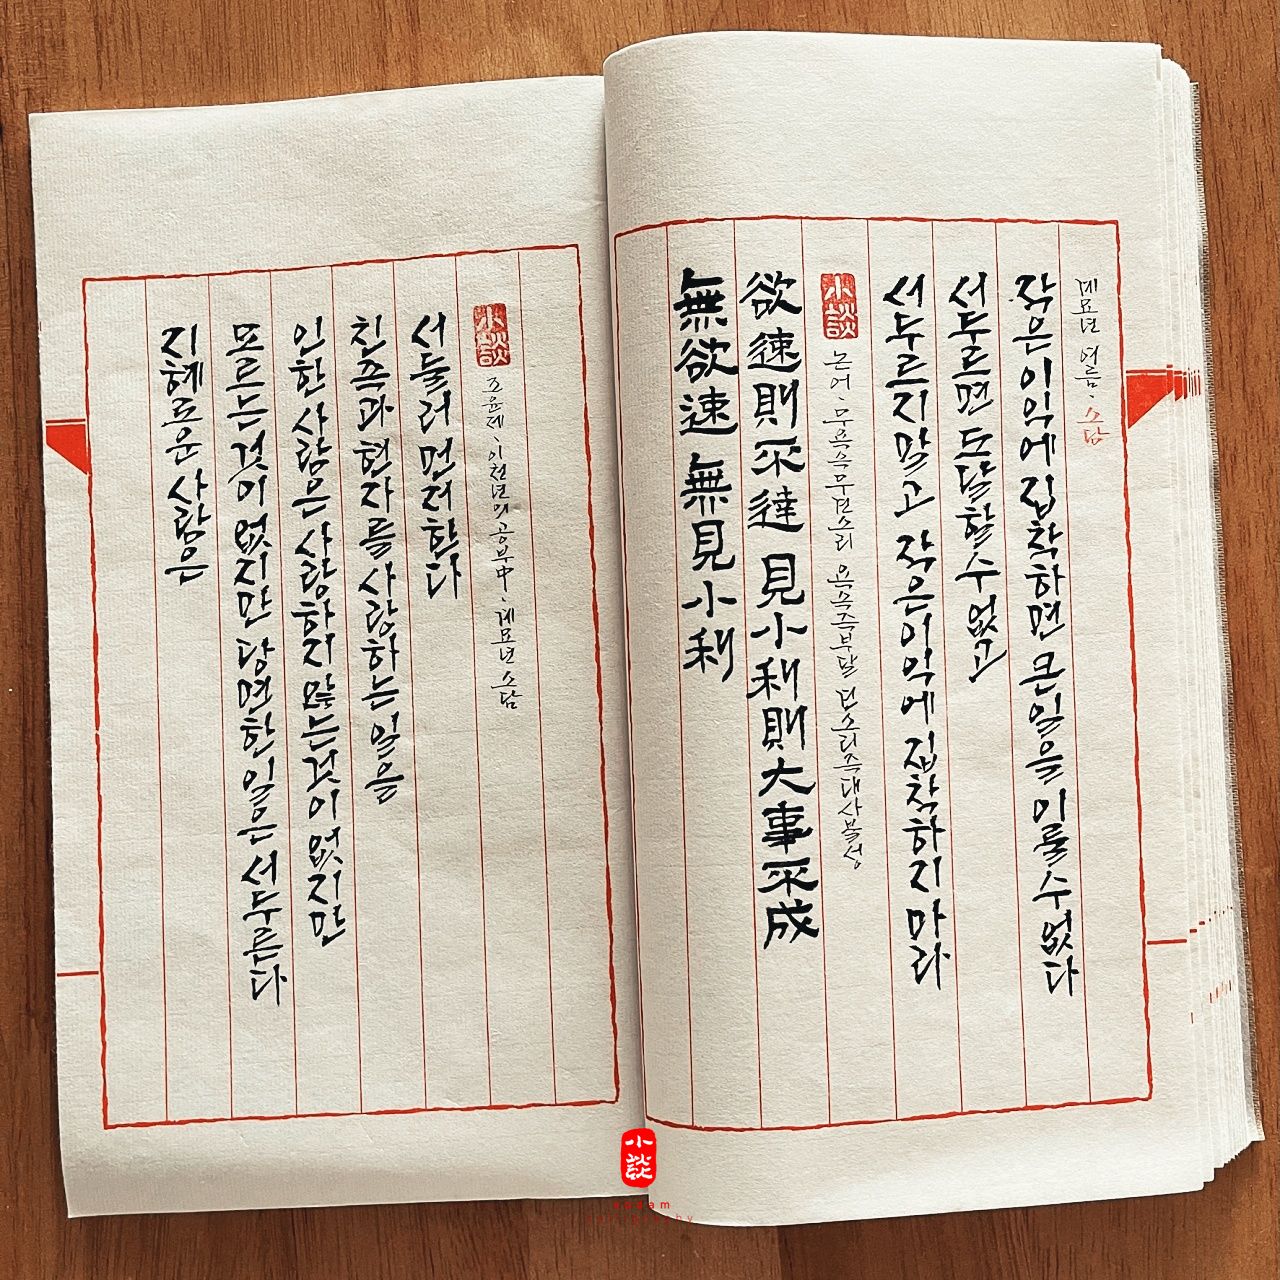 지혜로운 사람은
모르는 것이 없지만 당면한 일은 서두른다
인한 사람은 사랑하지 않는 것이 없지만
친족과 현자를 사랑하는 일을
서둘러 먼저 한다
小談 조윤제, 이천년의 공부中, 계묘년 소담
無欲速 無見小利
欲速則不達 見小利則大事不成
小談 논어, 무욕속무견소리 욕속즉부달 견소리즉대사불성
서두르지 말고 작은 이익에 집착하지 마라
서두르면 도달할 수 없고
작은 이익에 집착하면 큰일을 이룰 수 없다
계묘년 여름, 소담
小談